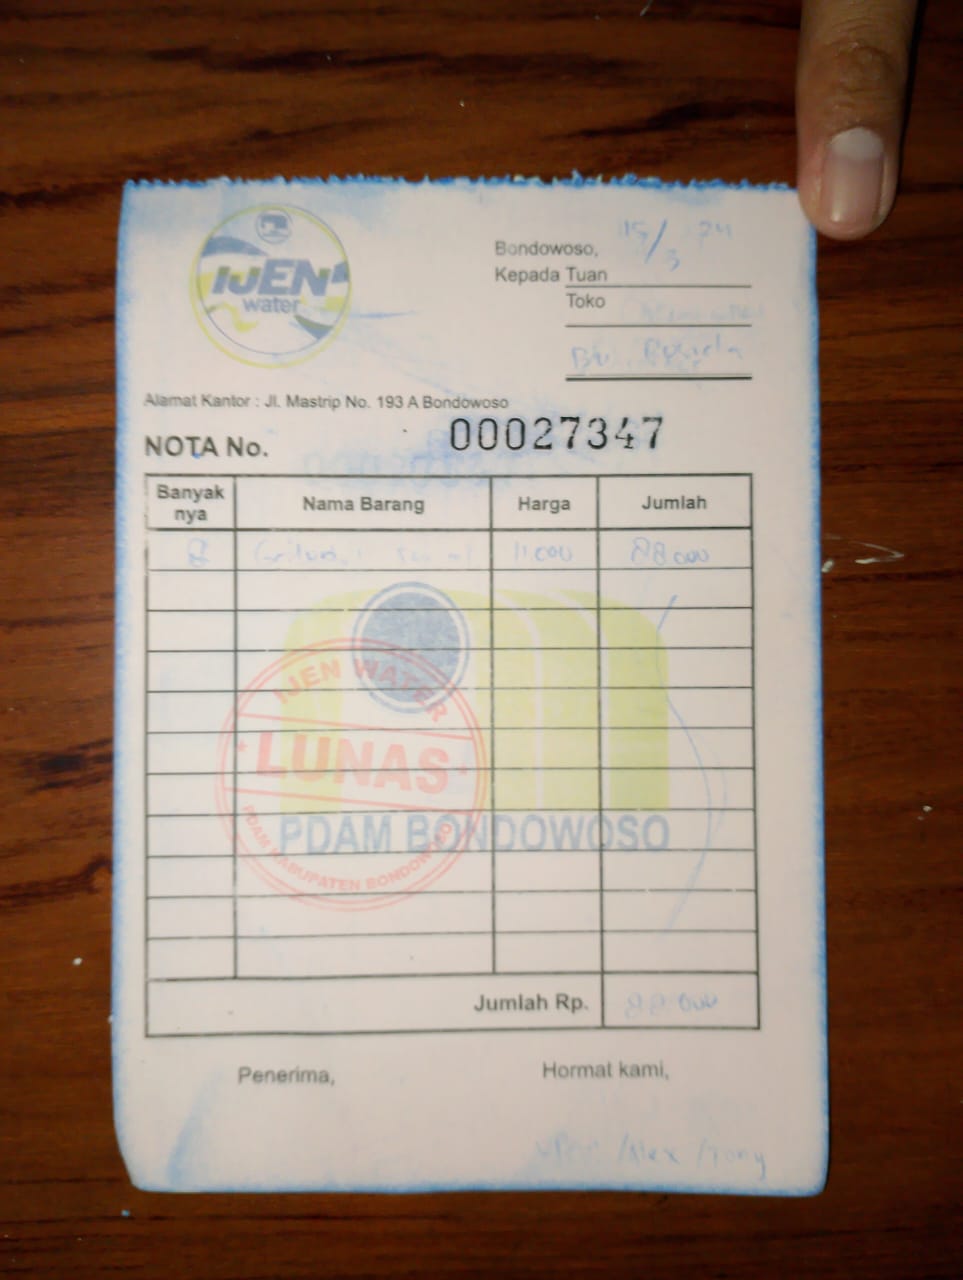 IJEN
water
Bondowoso, 15/3 24
Kepada Tuan
Toko
Bu
Alamat Kantor : Jl. Mastrip No. 193 A Bondowoso
NOTA No. 00027347
Banyak nya Nama Barang Harga Jumlah
8 500 ml 11.000 88.000
IJEN WATER
LUNAS
PDAM KABUPATEN BONDOWOSO
PDAM BONDOWOSO
Jumlah Rp. 88.000
Penerima, Hormat kami,
/Alex /Tony